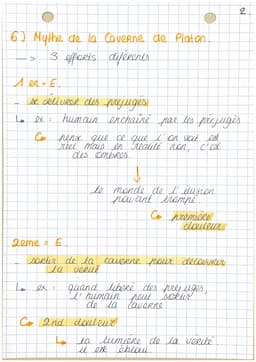 2.
6) Mythe de la Caverne de Platon.
--> 3 efforts diférents
1 er = E.
- se délivrer des préjugés
↳ ex : humain enchaîné par les préjugés
↳ pense que ce que l'on voit est
réel mais en réalité non, c'est
des ombres.
↓
le monde de l'illusion
pouvant trompé.
↳ première
douleur
2eme = E.
- sortir de la caverne pour découvrir
la vérité
↳ ex : quand libéré des préjugés,
l'humain peut sortir
de la caverne
↳ 2nd douleur
↳ la lumière de la vérité
il est éblouï